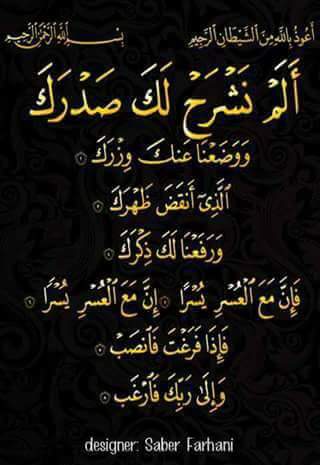 أعوذ بالله من الشيطان الرجيم بسم الله الرحمن الرحيم
أَلَمْ نَشْرَحْ لَكَ صَدْرَكَ
وَوَضَعْنَا عَنكَ وِزْرَكَ
ٱلَّذِىٓ أَنقَضَ ظَهْرَكَ
وَرَفَعْنَا لَكَ ذِكْرَكَ
فَإِنَّ مَعَ ٱلْعُسْرِ يُسْرًا إِنَّ مَعَ ٱلْعُسْرِ يُسْرًا
فَإِذَا فَرَغْتَ فَٱنصَبْ
وَإِلَىٰ رَبِّكَ فَٱرْغَب
designer: Saber Farhani